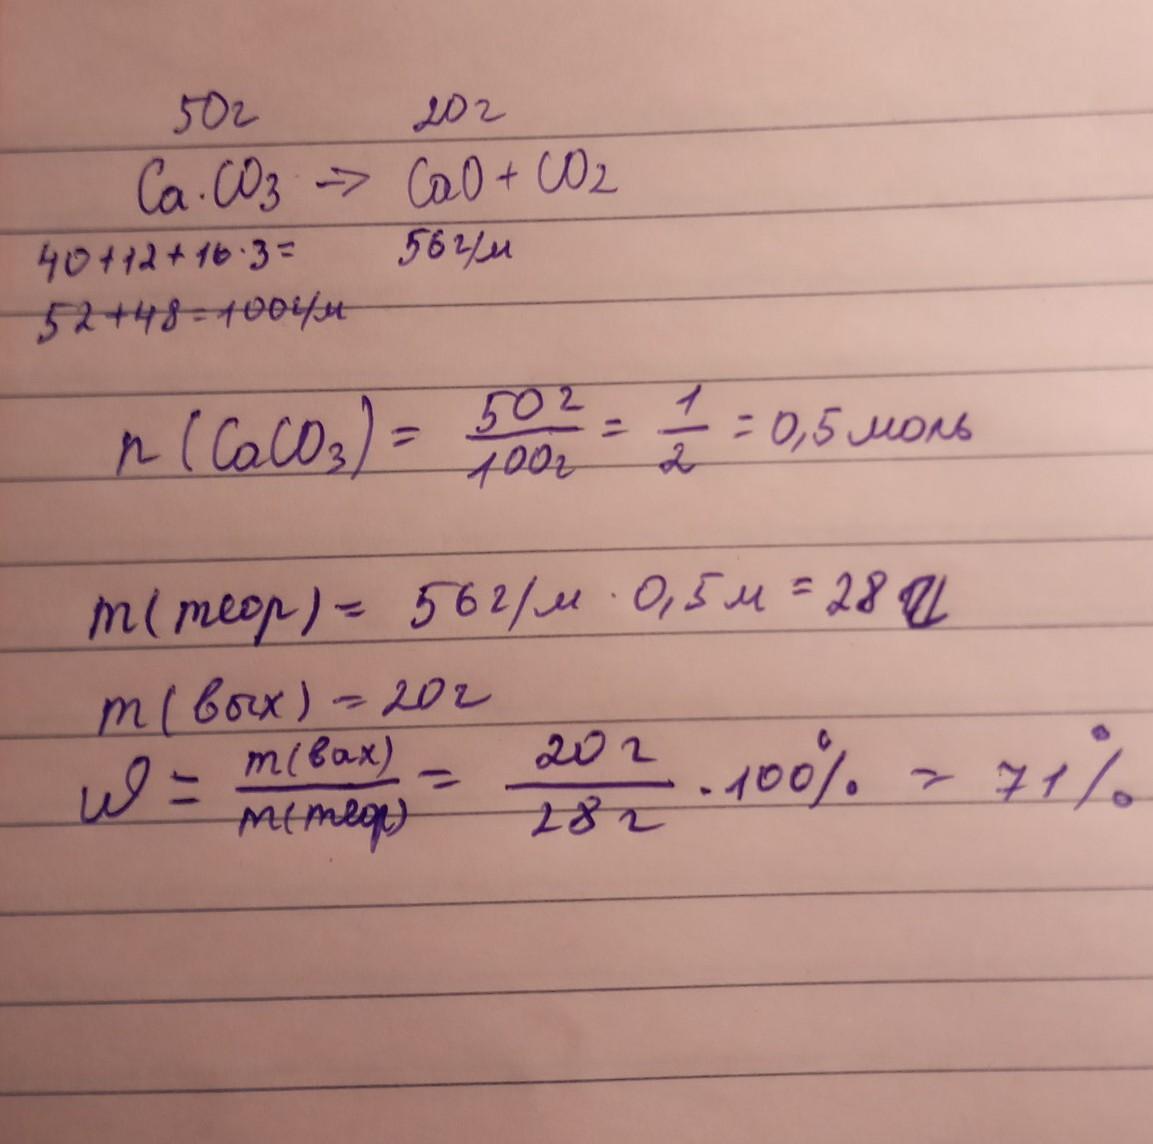 50г 20г
Ca.CO3 → CaO + CO2
40+12+16·3= 56г/м
52+48=100г/м
n (CaCO3) = 50г/100г = 1/2 = 0,5 моль
m(теор) = 56г/м · 0,5м = 28г
m(вых) = 20г
ω = m(вах)/m(теор) = 20г/28г · 100% = 71%